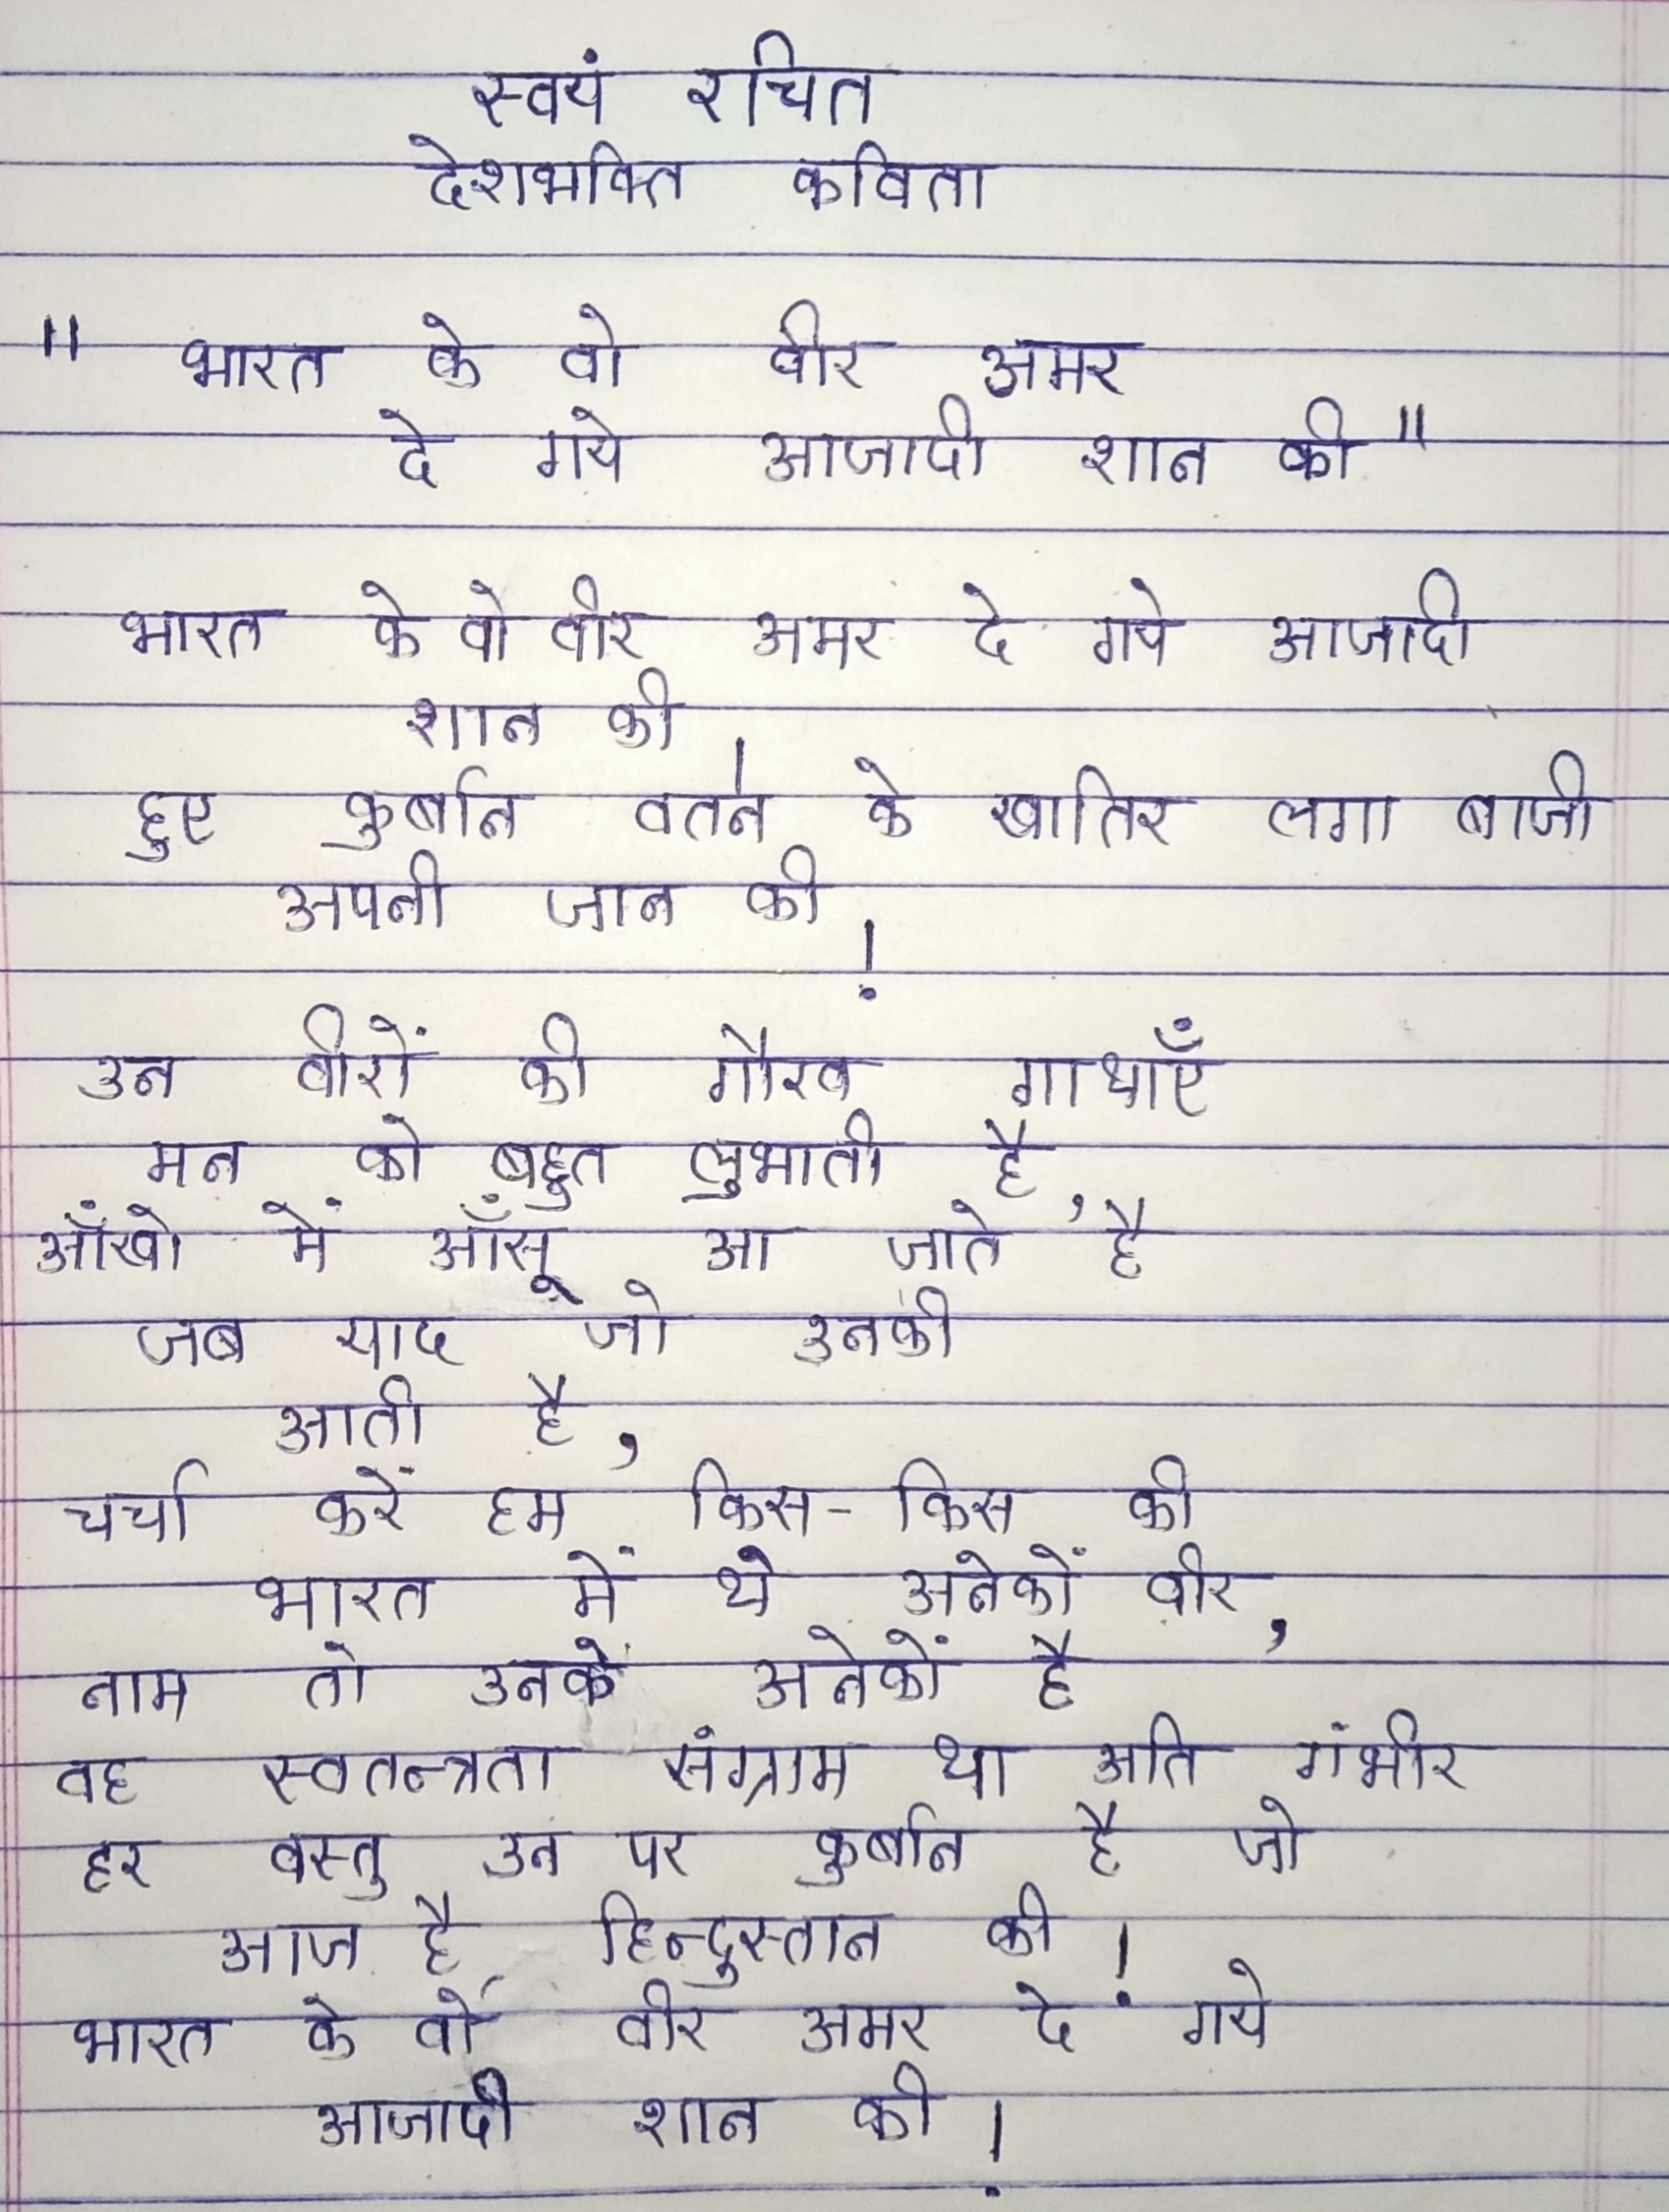 स्वयं रचित
देशभक्ति कविता
" भारत के वो वीर अमर
दे गये आजादी शान की "
भारत के वो वीर अमर दे गये आजादी
शान की !
हुए कुर्बान वतन के खातिर लगा बाजी
अपनी जान की !
उन वीरों की गौरव गाथाएँ
मन को बहुत लुभाती है,
आँखो में आँसू आ जाते है
जब याद जो उनकी
आती है,
चर्चा करें हम किस-किस की
भारत में थे अनेकों वीर,
नाम तो उनके अनेकों है
वह स्वतन्त्रता संग्राम था अति गंभीर
हर वस्तु उन पर कुर्बान है जो
आज है हिन्दुस्तान की !
भारत के वो वीर अमर दे गये
आजादी शान की !